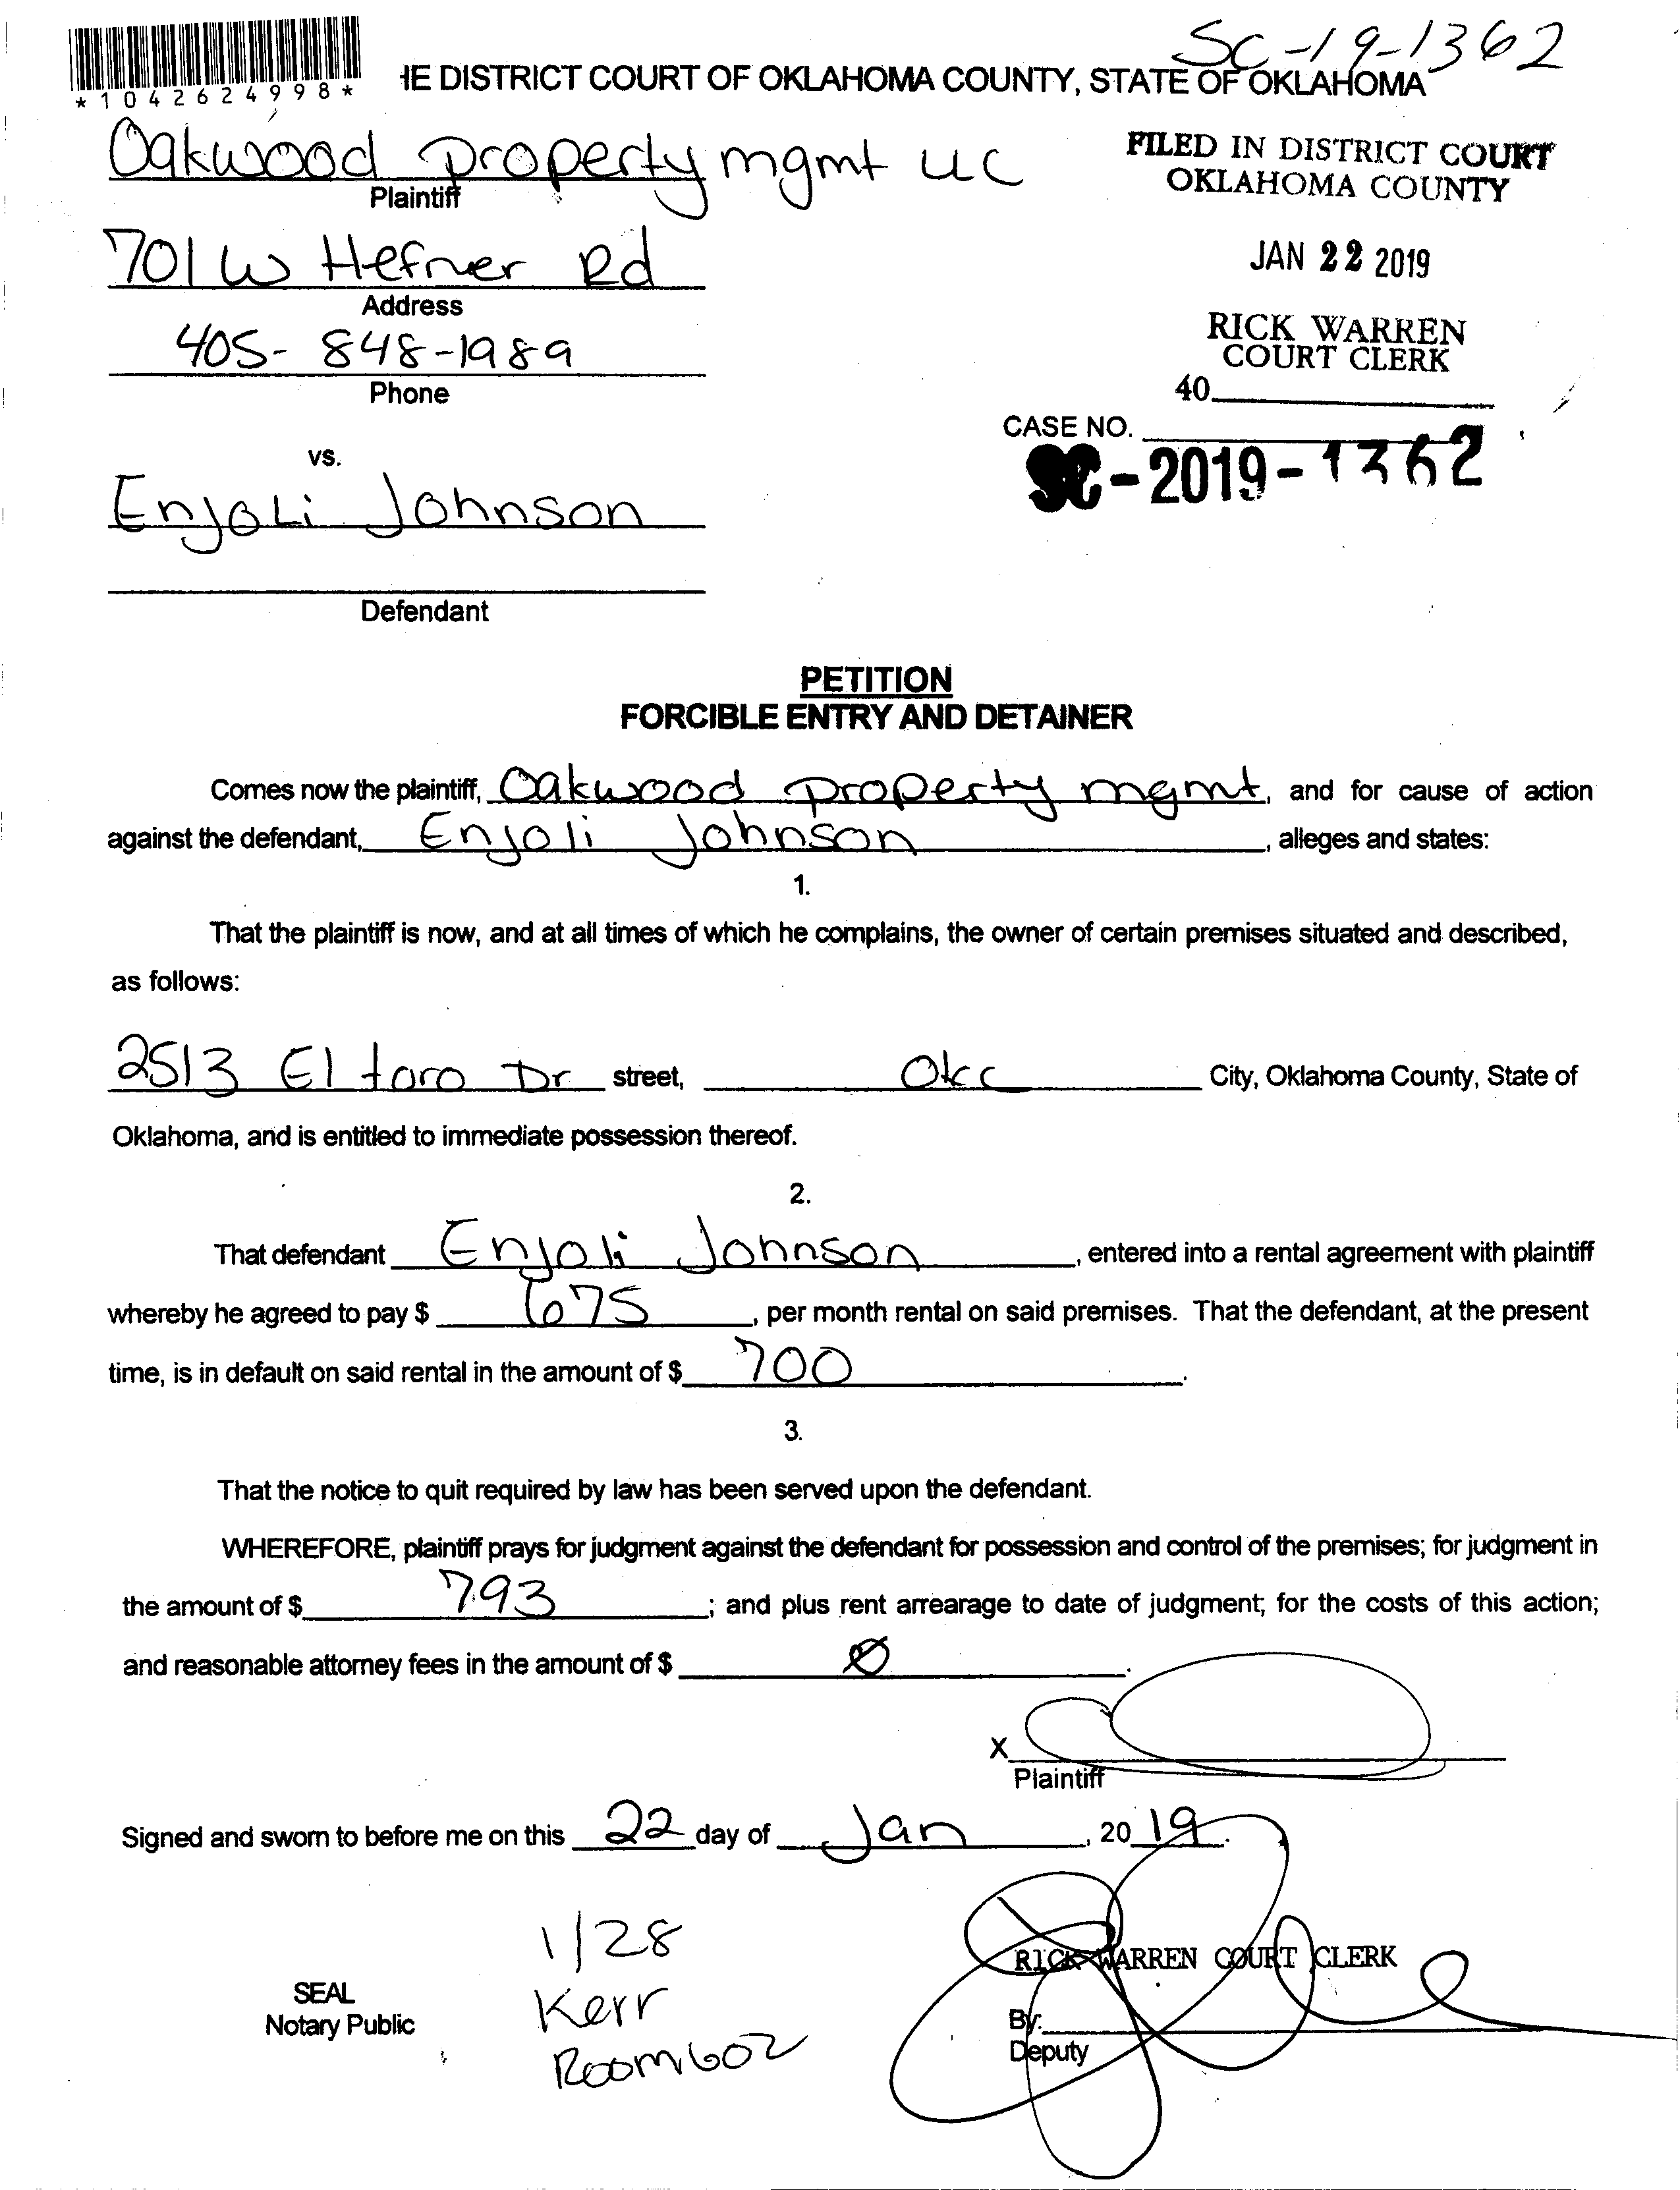 SC-19-1362
*1042624998*
HE DISTRICT COURT OF OKLAHOMA COUNTY, STATE OF OKLAHOMA
Oakwood property mgmt LLC
Plaintiff
FILED IN DISTRICT COURT
OKLAHOMA COUNTY
701 W Hefner Rd
Address
JAN 22 2019
405-848-1989
Phone
RICK WARREN
COURT CLERK
40
CASE NO.
SC-2019-1362
vs.
Enjoli Johnson
Defendant
PETITION
FORCIBLE ENTRY AND DETAINER
Comes now the plaintiff, Oakwood property mgmt, and for cause of action
against the defendant, Enjoli Johnson, alleges and states:
1.
That the plaintiff is now, and at all times of which he complains, the owner of certain premises situated and described,
as follows:
2513 El toro Dr street, Okc City, Oklahoma County, State of
Oklahoma, and is entitled to immediate possession thereof.
2.
That defendant Enjoli Johnson, entered into a rental agreement with plaintiff
whereby he agreed to pay $ 675, per month rental on said premises. That the defendant, at the present
time, is in default on said rental in the amount of $ 700.
3.
That the notice to quit required by law has been served upon the defendant.
WHEREFORE, plaintiff prays for judgment against the defendant for possession and control of the premises; for judgment in
the amount of $ 793; and plus rent arrearage to date of judgment; for the costs of this action;
and reasonable attorney fees in the amount of $ 0.
X
Plaintiff
Signed and sworn to before me on this 22 day of Jan, 2019.
1/28
Kerr
Room 602
SEAL
Notary Public
RICK WARREN COURT CLERK
By:
Deputy